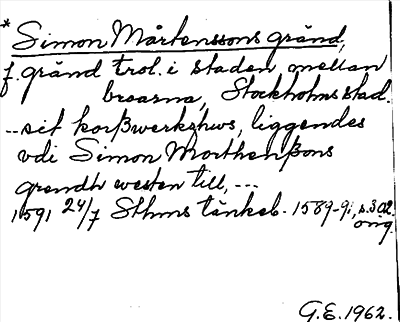 * Simon Mårtenssons gränd,
f. gränd trol. i staden mellan
broarna, Stockholms stad.
--sit korßwerkzhws, liggendes
vdi Simon Morthenßons
grendh westen till, ---
1591 24/7 Sthms tänkeb. 1589-91, s. 302.
orig.
G.E. 1962.